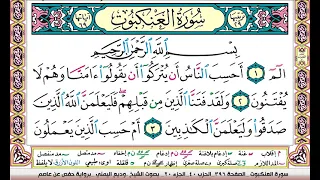 سُورَةُ الْعَنكَبُوتِ
بِسْمِ اللَّهِ الرَّحْمَٰنِ الرَّحِيمِ
الٓمٓ ١ أَحَسِبَ النَّاسُ أَن يُتْرَكُوٓا۟ أَن يَقُولُوٓا۟ ءَامَنَّا وَهُمْ لَا
يُفْتَنُونَ ٢ وَلَقَدْ فَتَنَّا الَّذِينَ مِن قَبْلِهِمْ فَلَيَعْلَمَنَّ اللَّهُ الَّذِينَ
صَدَقُوا۟ وَلَيَعْلَمَنَّ الْكَٰذِبِينَ ٣ أَمْ حَسِبَ الَّذِينَ يَعْمَلُونَ
سورة العنكبوت الصفحة ٣٩٦ الحزب ٤٠ الجزء ٢٠ بصوت الشيخ وديع اليمني برواية حفص عن عاصم